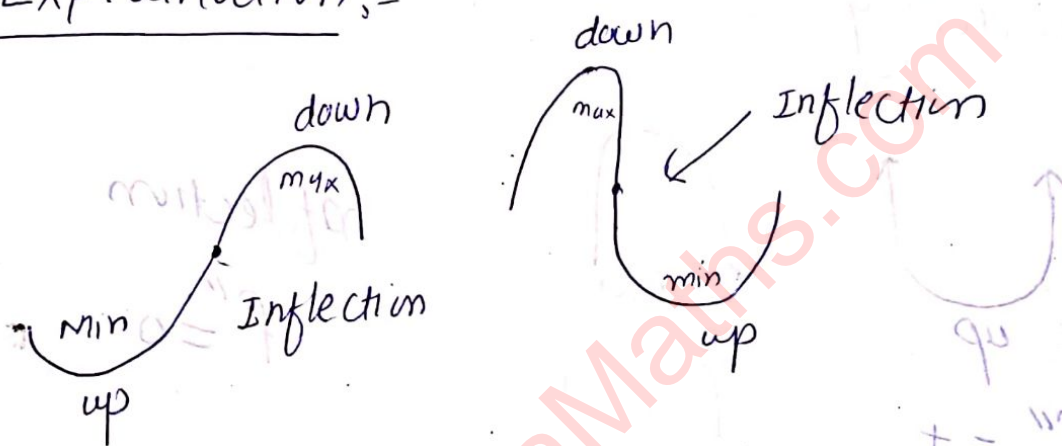 Explanation:-
down
max
Inflection
Min
up
down
max
Inflection
min
up
Maths.com